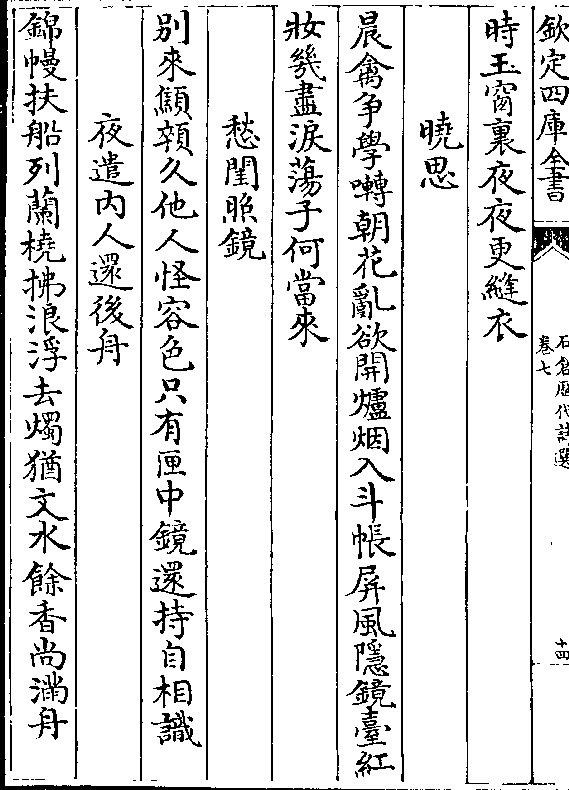 欽定四庫全書
石倉歷代詩選
卷七
十四
時玉窗裏夜夜更縫衣
曉思
晨禽争學囀朝花亂欲開爐烟入斗帳屏風隱鏡臺紅
妝幾盡淚蕩子何當來
愁閨照鏡
别來顦顇久他人怪容色只有匣中鏡還持自相識
夜遣内人還後舟
錦幔扶船列蘭橈拂浪浮去燭猶文水餘香尚滿舟